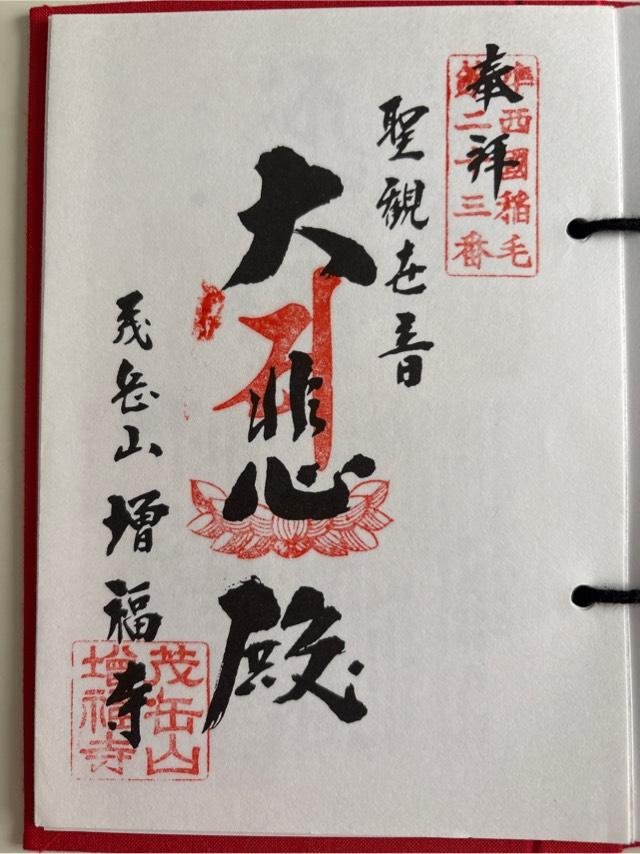 奉拝
准西國稲毛
第二十三番
聖観世音
大悲殿
茂岳山 増福寺
茂岳山
増福寺